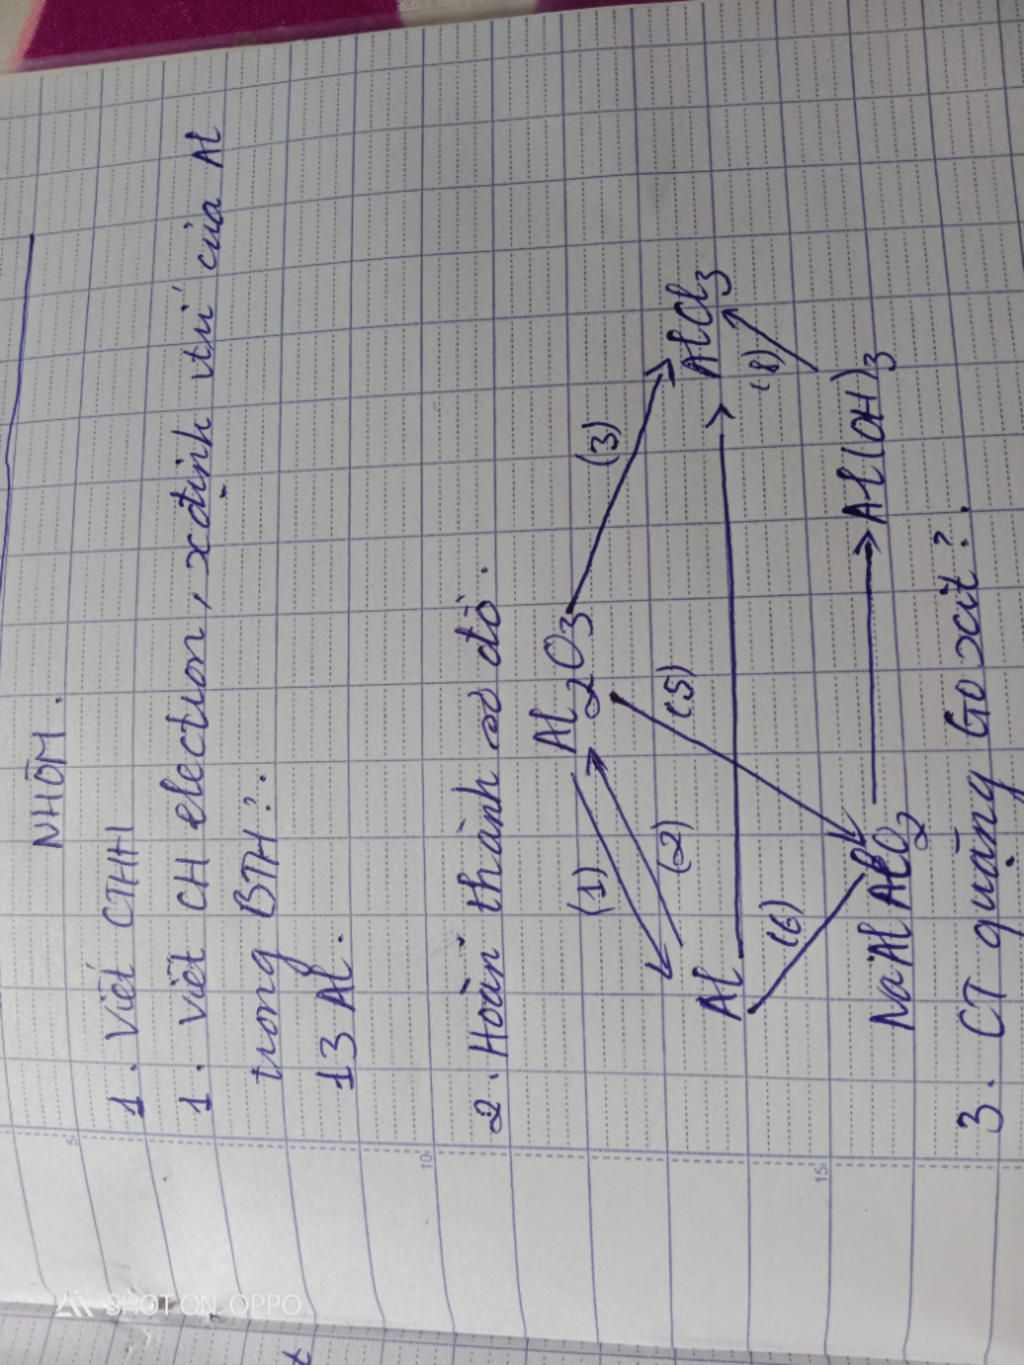 NHÔM.
1. Viết CTHH
1. Viết CH election, xđịnh vtrí của Al
trong BTH?.
13 Al.
2. Hoàn thành sơ đồ.
Al2O3
(1) (2) (3)
(5)
Al AlCl3
(6) (8)
NaAlAlO2 Al(OH)3
3. CT quặng Boxit?.
5
10
15
SHOT ON OPPO